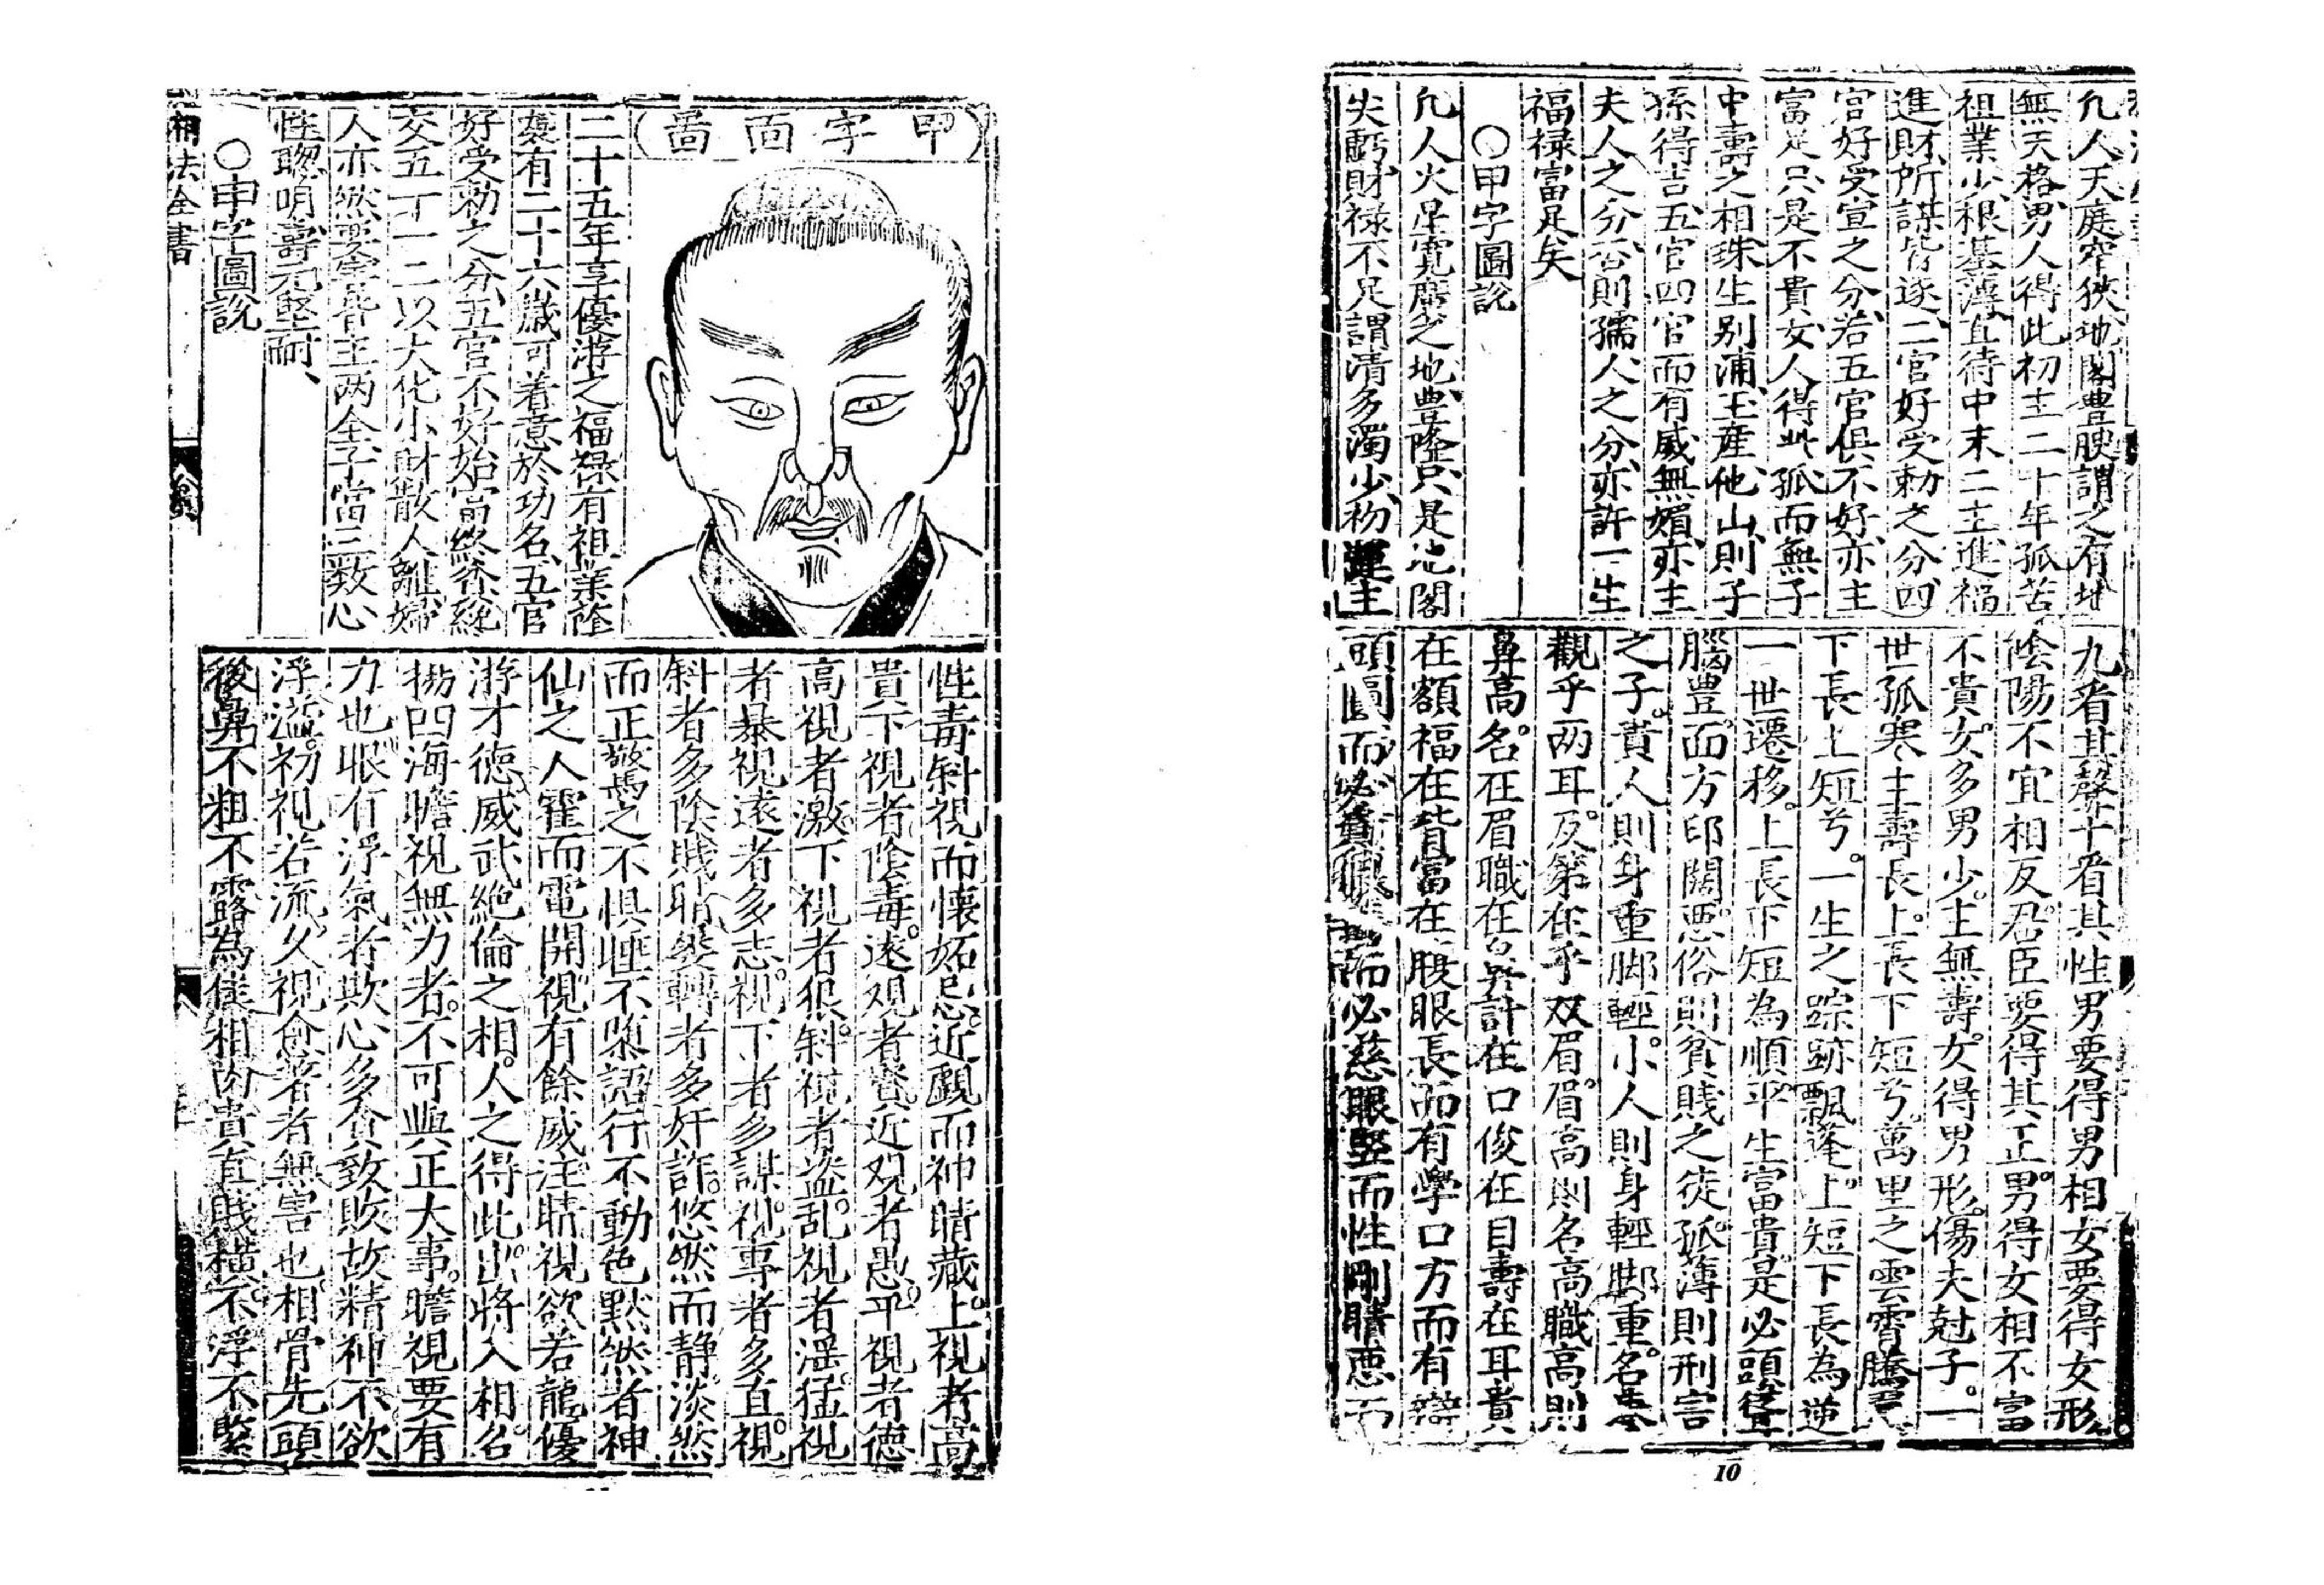 凢人天庭窄狹地閣豊腴謂之有地
無天格男人得此初主二十年孤苦
祖業少根基薄直待中末二主進福
進財所謀皆遂二官好受勅之分四
官好受宣之分若五官俱不好亦主
富足只是不貴女人得此孤而無子
中壽之相珠生别浦玉産他山則子
孫得吉五官四官而有威無媚亦主
夫人之分否則孺人之分亦許一生
福禄富足矣
○甲字圖説
凢人火星寛廣之地豊隆只是地閣
失虧財禄不足謂清多濁少初運主
九看其聲十看其性男要得男相女要得女形
陰陽不宜相反君臣要得其正男得女相不富
不貴女多男少主無壽女得男形傷夫尅子一
世孤寒主壽長上長下短兮萬里之雲霄騰
下長上短兮一生之踪跡飄蓬上短下長為逆
一世遷移上長下短為順平生富貴是必頭
腦豊面方印闊悪俗則貧賤之徒孤薄則刑害
之子貴人則身重脚輕小人則身輕脚重名
觀乎兩耳及第在乎双眉眉高則名高職高則
鼻高名在眉職在鼻計在口俊在目壽在耳貴
在額福在背富在腹眼長而有學口方而有辯
頭圓而必貴 而必慈眼竪而性剛睛悪而
甲字面圖
二十五年享優游之福禄有祖業蔭
襲有二十六歳可着意於功名五官
好受勅之分五官不好始富終
交五丁一二以大化小財散人離婦
人亦然要字皆主两全子當三数心
性聰明壽元堅耐
○申字圖説
相法全書
性毒斜視而懐妬忌近覷而神睛藏上視者高
貴下視者陰毒遠观者賢近观者愚平視者德
高視者激下視者狠斜視者盗乱視者滛猛視
者暴視遠者多志視下者多謀視專者多直視
斜者多陰賊 轉者多奸詐悠然而静淡然
而正驚之不惧唾不 詔行不動色默然者神
仙之人霍而電開視有餘威注睛視欲若龍優
游才德威武絶倫之相人之得此出將入相名
揚四海瞻視無力者不可與正大事瞻視要有
力也眼有浮氣者欺心多貪致敗故精神不欲
浮溢初視若流久視愈著者無害也相骨先頭
後鼻不粗不露為様相肉貴直賤横不浮不緊
10